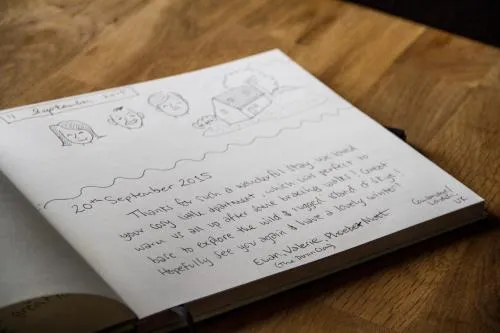 September 2015
20th September 2015
Thanks for such a wonderful stay we loved
your cosy little apartment which was perfect to
warm us all up after some bracing walks! Great
base to explore the wild & rugged island of Skye!
Hopefully see you again & have a lovely winter!
Euan, Valerie, Phoebe
(The Doran Clan)
London
UK
great